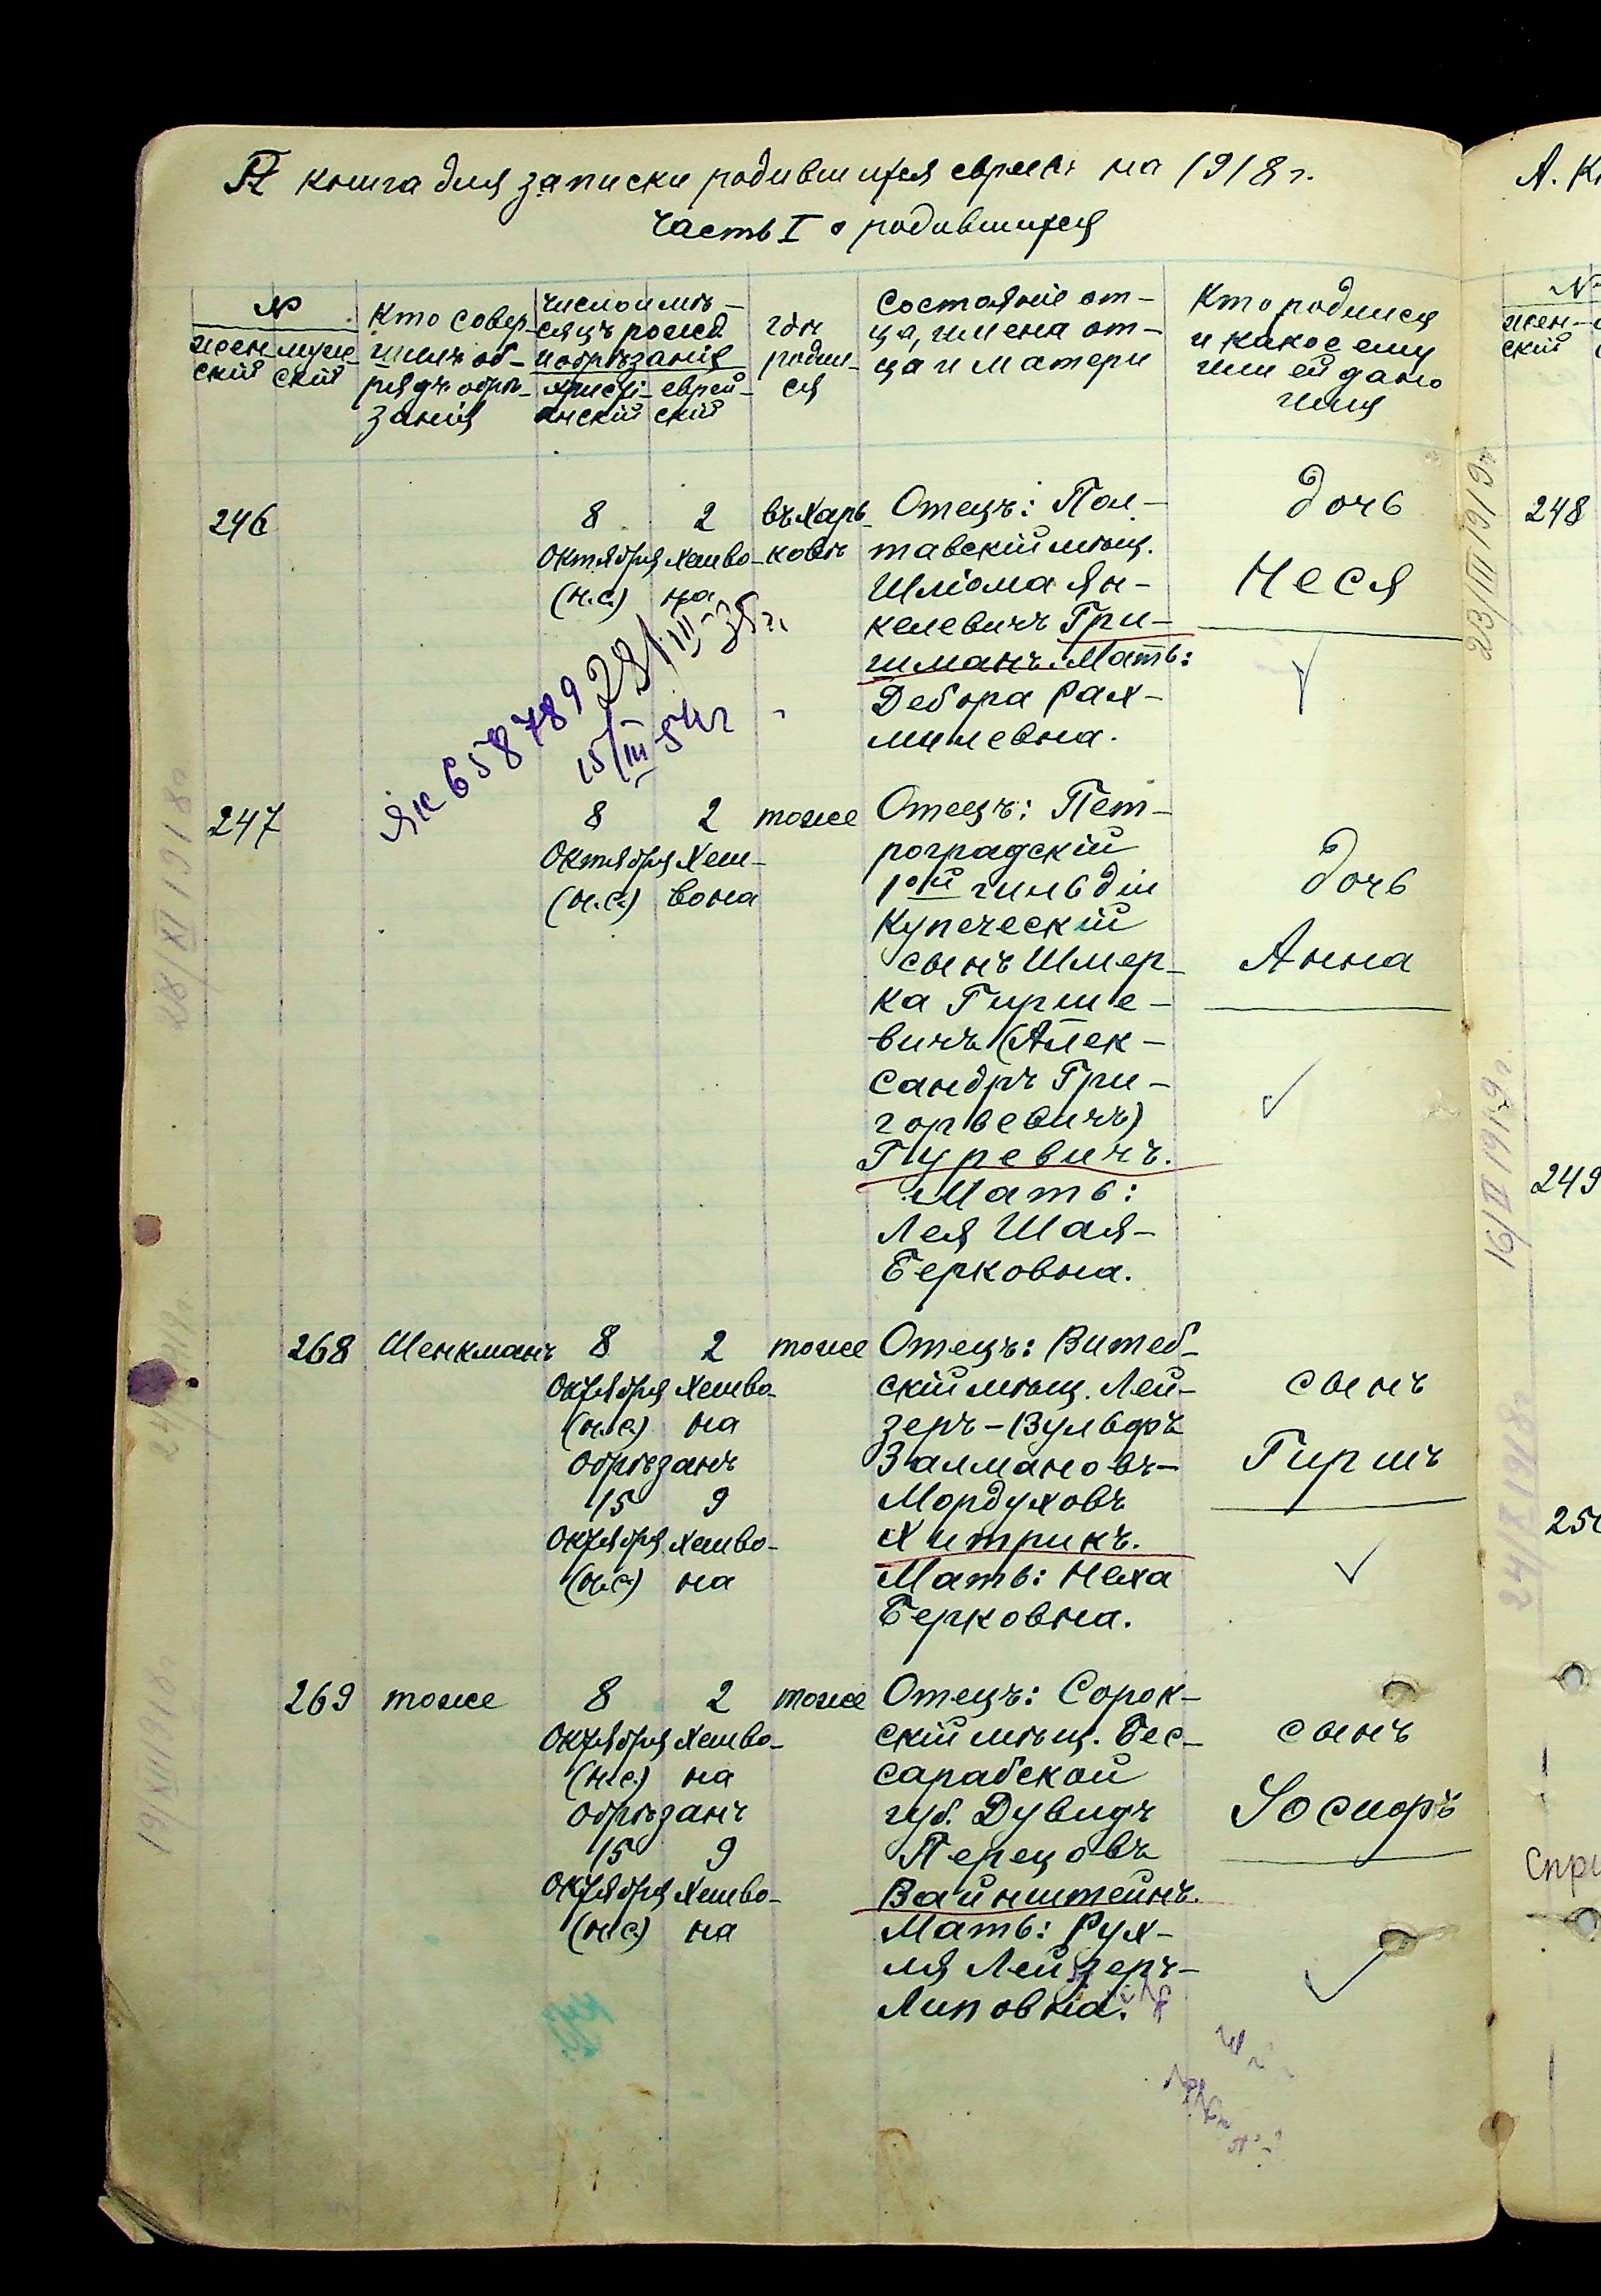 А книга для записки родившихся евреевъ на 1918 г.
Часть I о родившихся
№
жен-
скій
муж-
скій
Кто совер-
шилъ об-
рядъ обрѣ-
занія
Число и мѣ-
сяцъ рожд.
и обрѣзанія
христі-
анскій
еврей-
скій
гдѣ
родил-
ся
Состояніе от-
ца, имена от-
ца и матери
Кто родился
и какое ему
или ей дано
имя
246
8
Октября
(н.с.)
2
Хешво-
на
въ Харь-
ковѣ
Отецъ: Пол-
тавскій мѣщ.
Шліома Ян-
келевичъ Гри-
шманъ. Мать:
Дебора Рах-
милевна.
дочь
Неся
ЯК 658789 28/III-35г.
15/III-54г
247
8
Октября
(н.с.)
2
Хеш-
вона
тоже
Отецъ: Пет-
роградскій
1ой гильдіи
Купеческій
сынъ Шмер-
ка Гирше-
вичъ (Алек-
сандръ Гри-
горьевичъ)
Гуревичъ.
Мать:
Лея Шая-
Берковна.
дочь
Анна
268
Шенкманъ
8
Октября
(н.с.)
2
Хешво-
на
Обрѣзанъ
15
Октября
(н.с.)
9
Хешво-
на
тоже
Отецъ: Витеб-
скій мѣщ. Лей-
зеръ-Вульфъ
Залмановъ-
Мордуховъ
Хитрикъ.
Мать: Неха
Берковна.
сынъ
Гиршъ
269
тоже
8
Октября
(н.с.)
2
Хешво-
на
Обрѣзанъ
15
Октября
(н.с.)
9
Хешво-
на
тоже
Отецъ: Сорок-
скій мѣщ. Бес-
сарабской
губ. Дувидъ
Перецовъ
Вайнштейнъ.
Мать: Рух-
ля Лейзеръ-
Липовна.
сынъ
Іосифъ
28/XI 1918г
19/XII 1918г
23/III 1919г
16/II 1919г.
24/X 1918г
А. К
№
жен-
скій
248
249
25
Спр